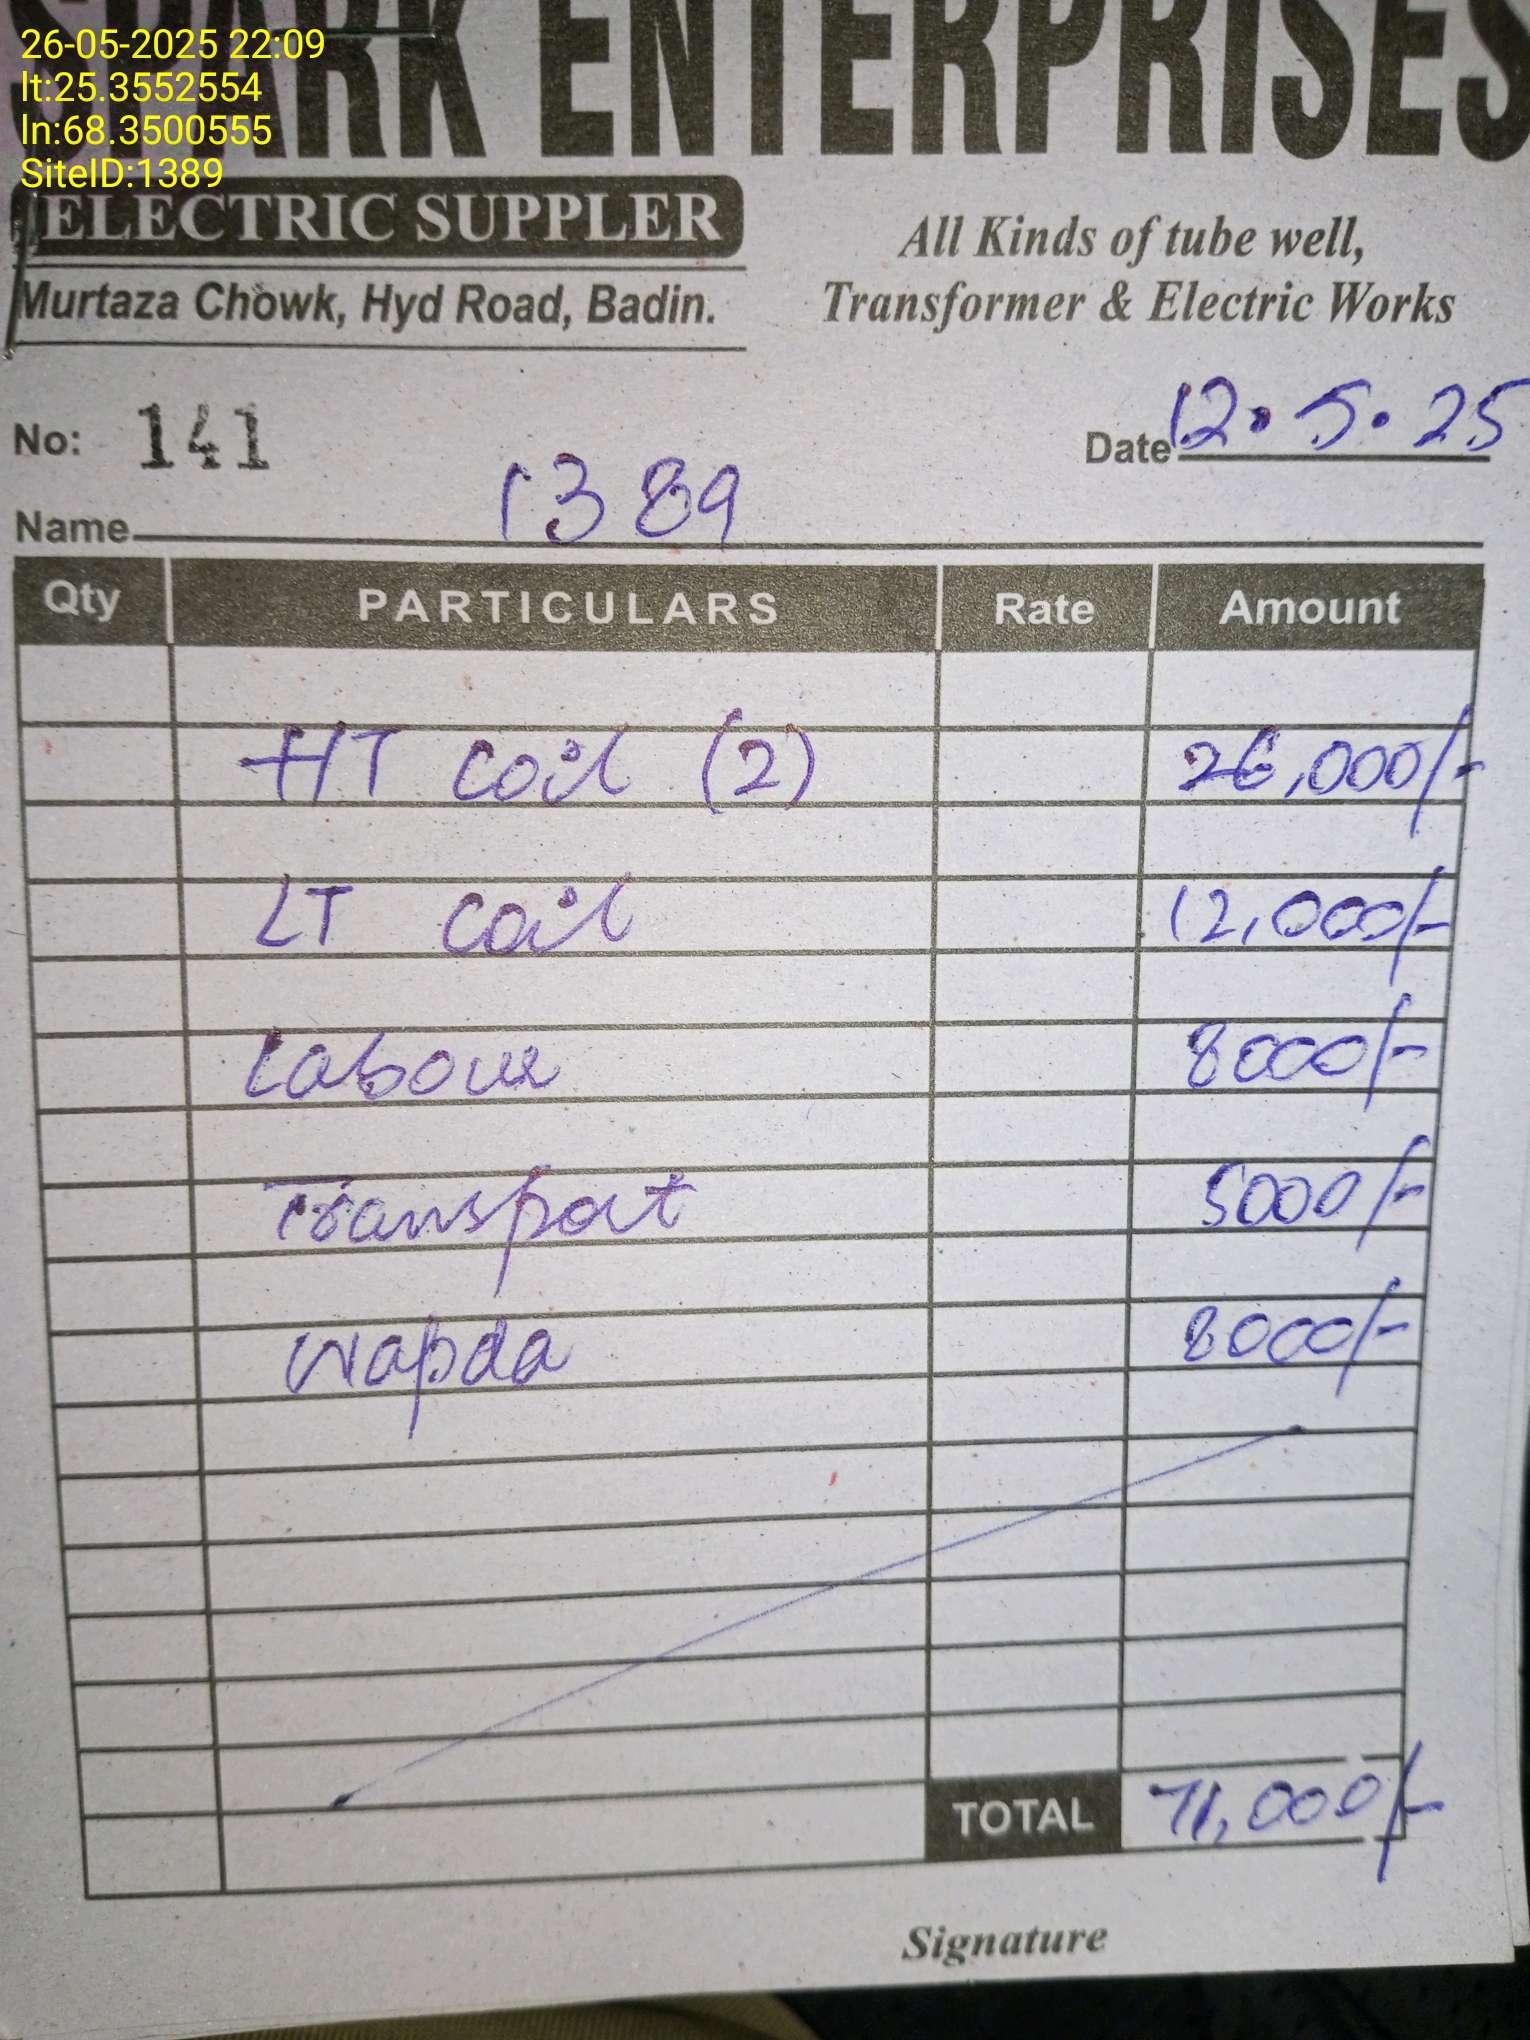 26-05-2025 22:09
lt:25.3552554
ln:68.3500555
SiteID:1389
SPARK ENTERPRISES
ELECTRIC SUPPLER
Murtaza Chowk, Hyd Road, Badin.
All Kinds of tube well,
Transformer & Electric Works
No: 141
Date 12.5.25
Name 1389
Qty PARTICULARS Rate Amount
HT coil (2) 26,000/-
LT coil 12,000/-
Labour 8000/-
Transport 5000/-
wapda 8000/-
TOTAL 71,000/-
Signature